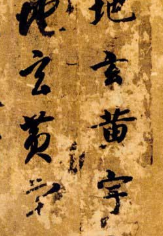 地玄黄宇
地玄黄